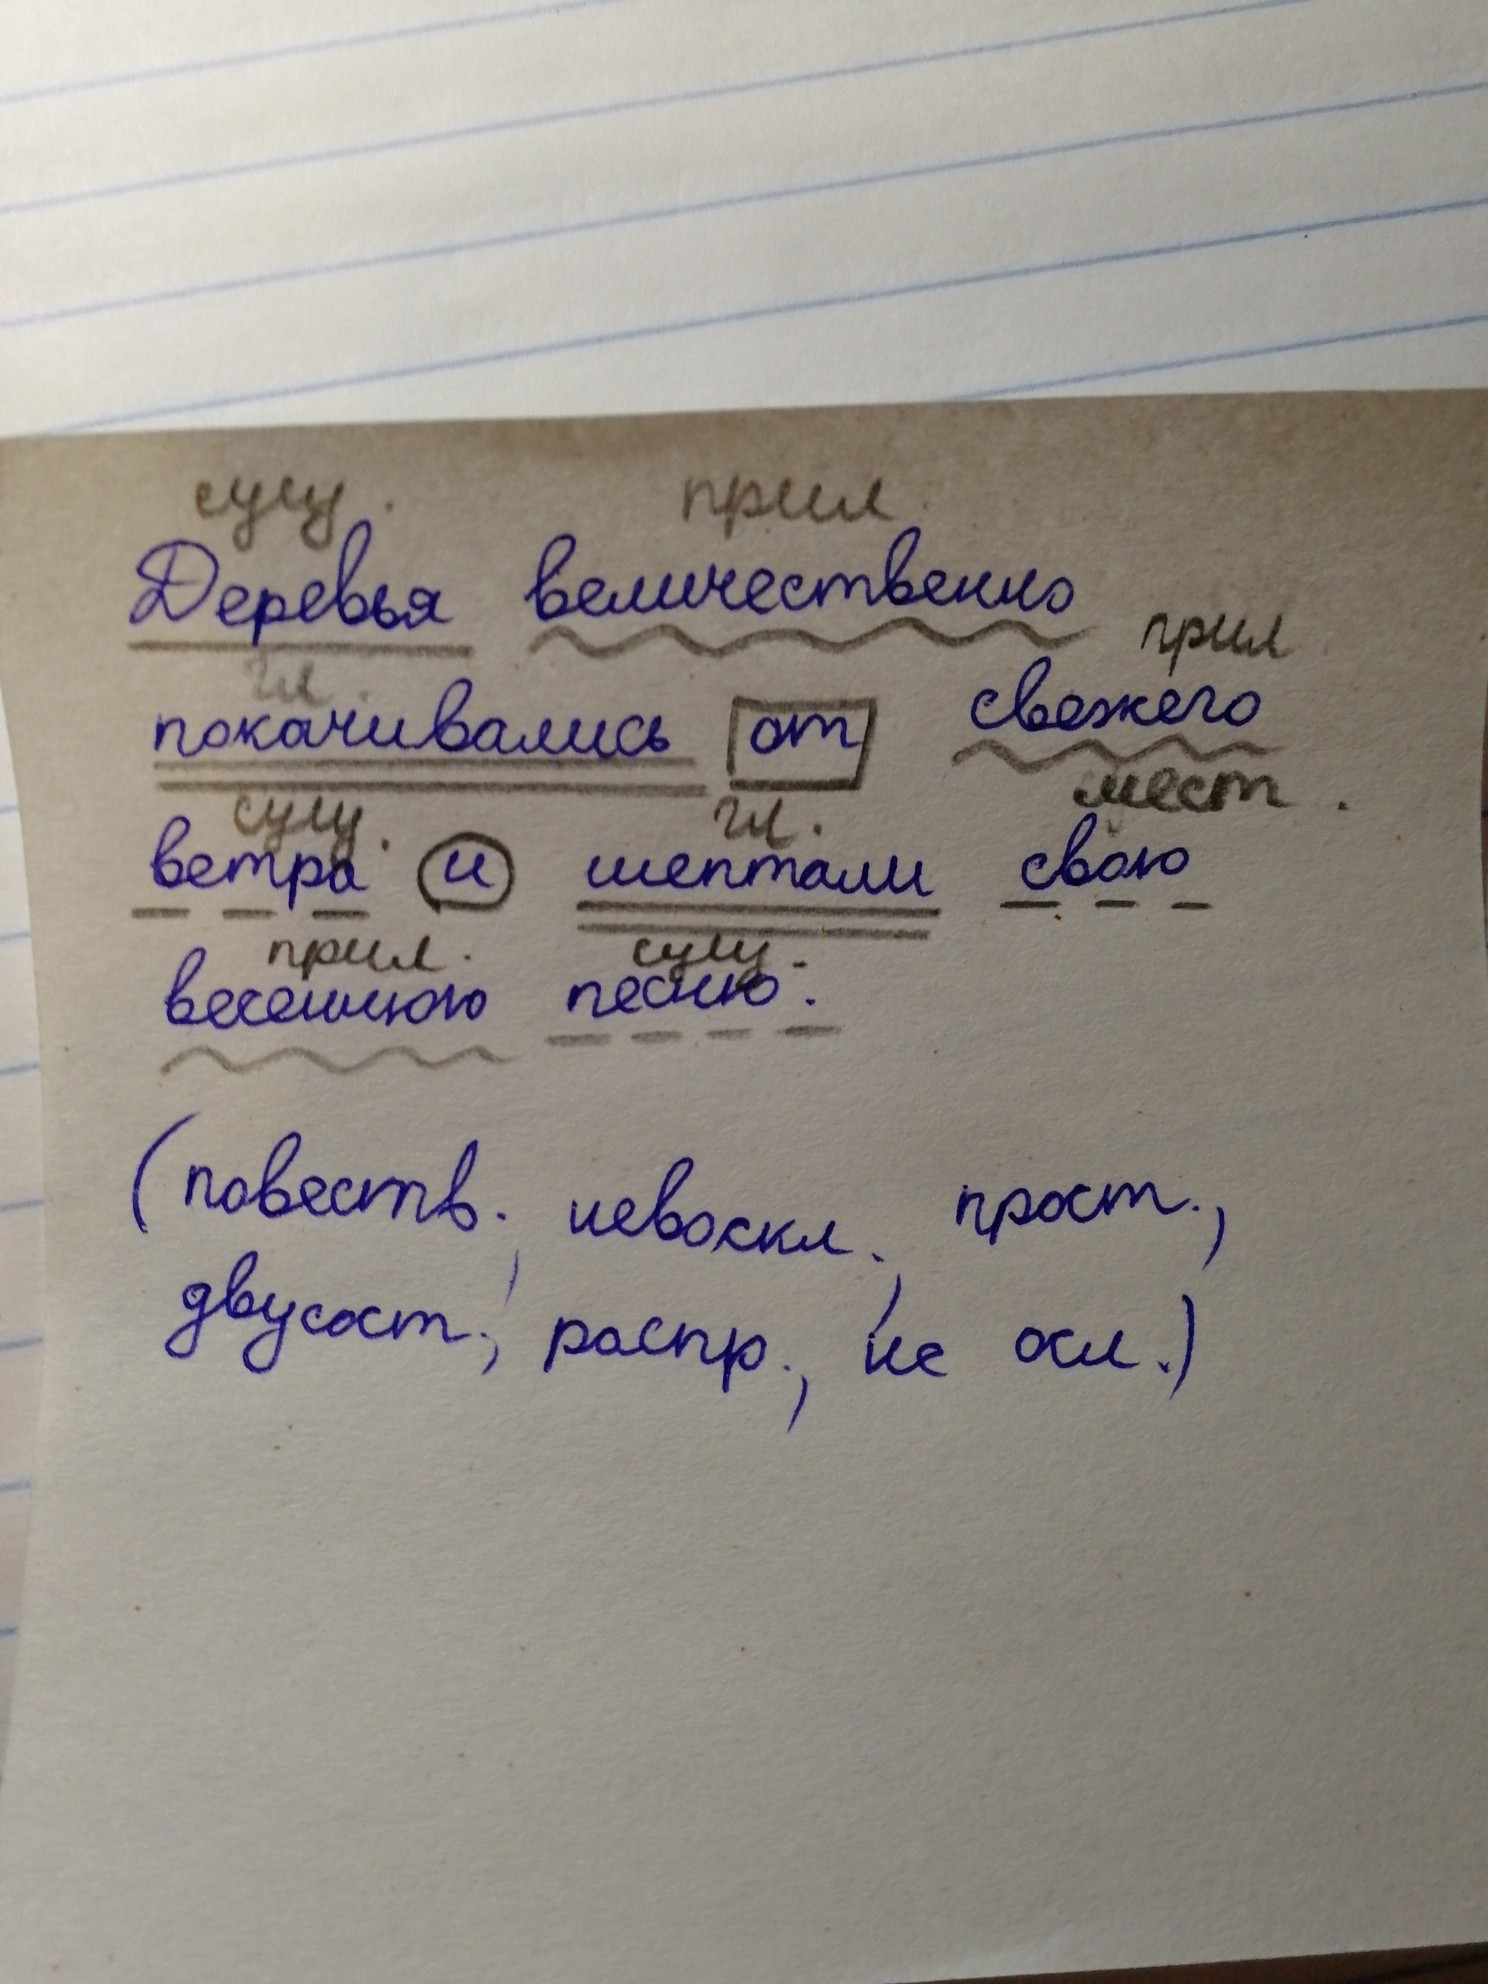 сущ. прил.
Деревья величественно
гл. прил
покачивались от свежего
сущ. гл. мест.
ветра и шептали свою
прил. сущ.
весеннюю песню.
(повеств., невоскл., прост.,
двусост., распр., не осл.)